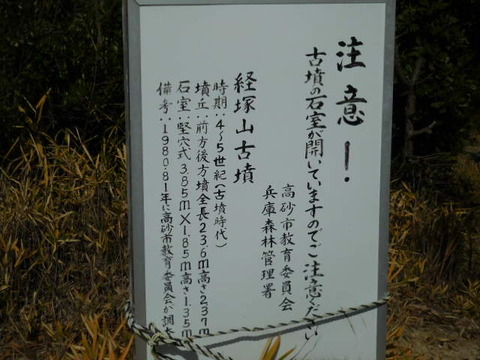 注意!
古墳の石室が開いていますのでご注意ください
高砂市教育委員会
兵庫森林管理署
経塚山古墳
時期:4〜5世紀(古墳時代)
墳丘:前方後方墳全長23.6m高さ2.37m
石室:竪穴式3.85m×1.85m高さ1.35m
備考:1980.81年に高砂市教育委員会が調